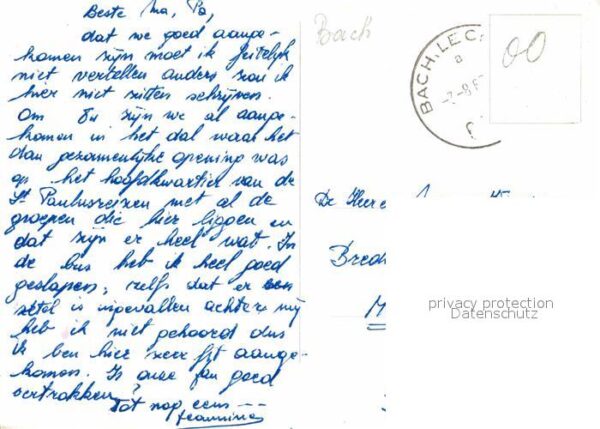 Beste Ma, Pa,
dat we goed aange-
komen zijn moet ik feitelijk
niet vertellen anders zou ik
hier niet zitten schrijven.
Om 8u zijn we al aange-
komen in het dal waar het
dan gezamenlijke opening was
op het hoofdkwartier van de
St Paulusreizen met al de
groepen die hier liggen en
dat zijn er heel wat. In
de bus heb ik heel goed
geslapen, zelfs dat er een
zetel is ingevallen achter mij
heb ik niet gehoord dus
ik ben hier zeer fit aange-
komen. Is onze fan goed
vertrokken?
Tot nog eens ---
Jeannine
Bach
BACH, LE C
8
00
De Heer e
Bred
M
privacy protection
Datenschutz